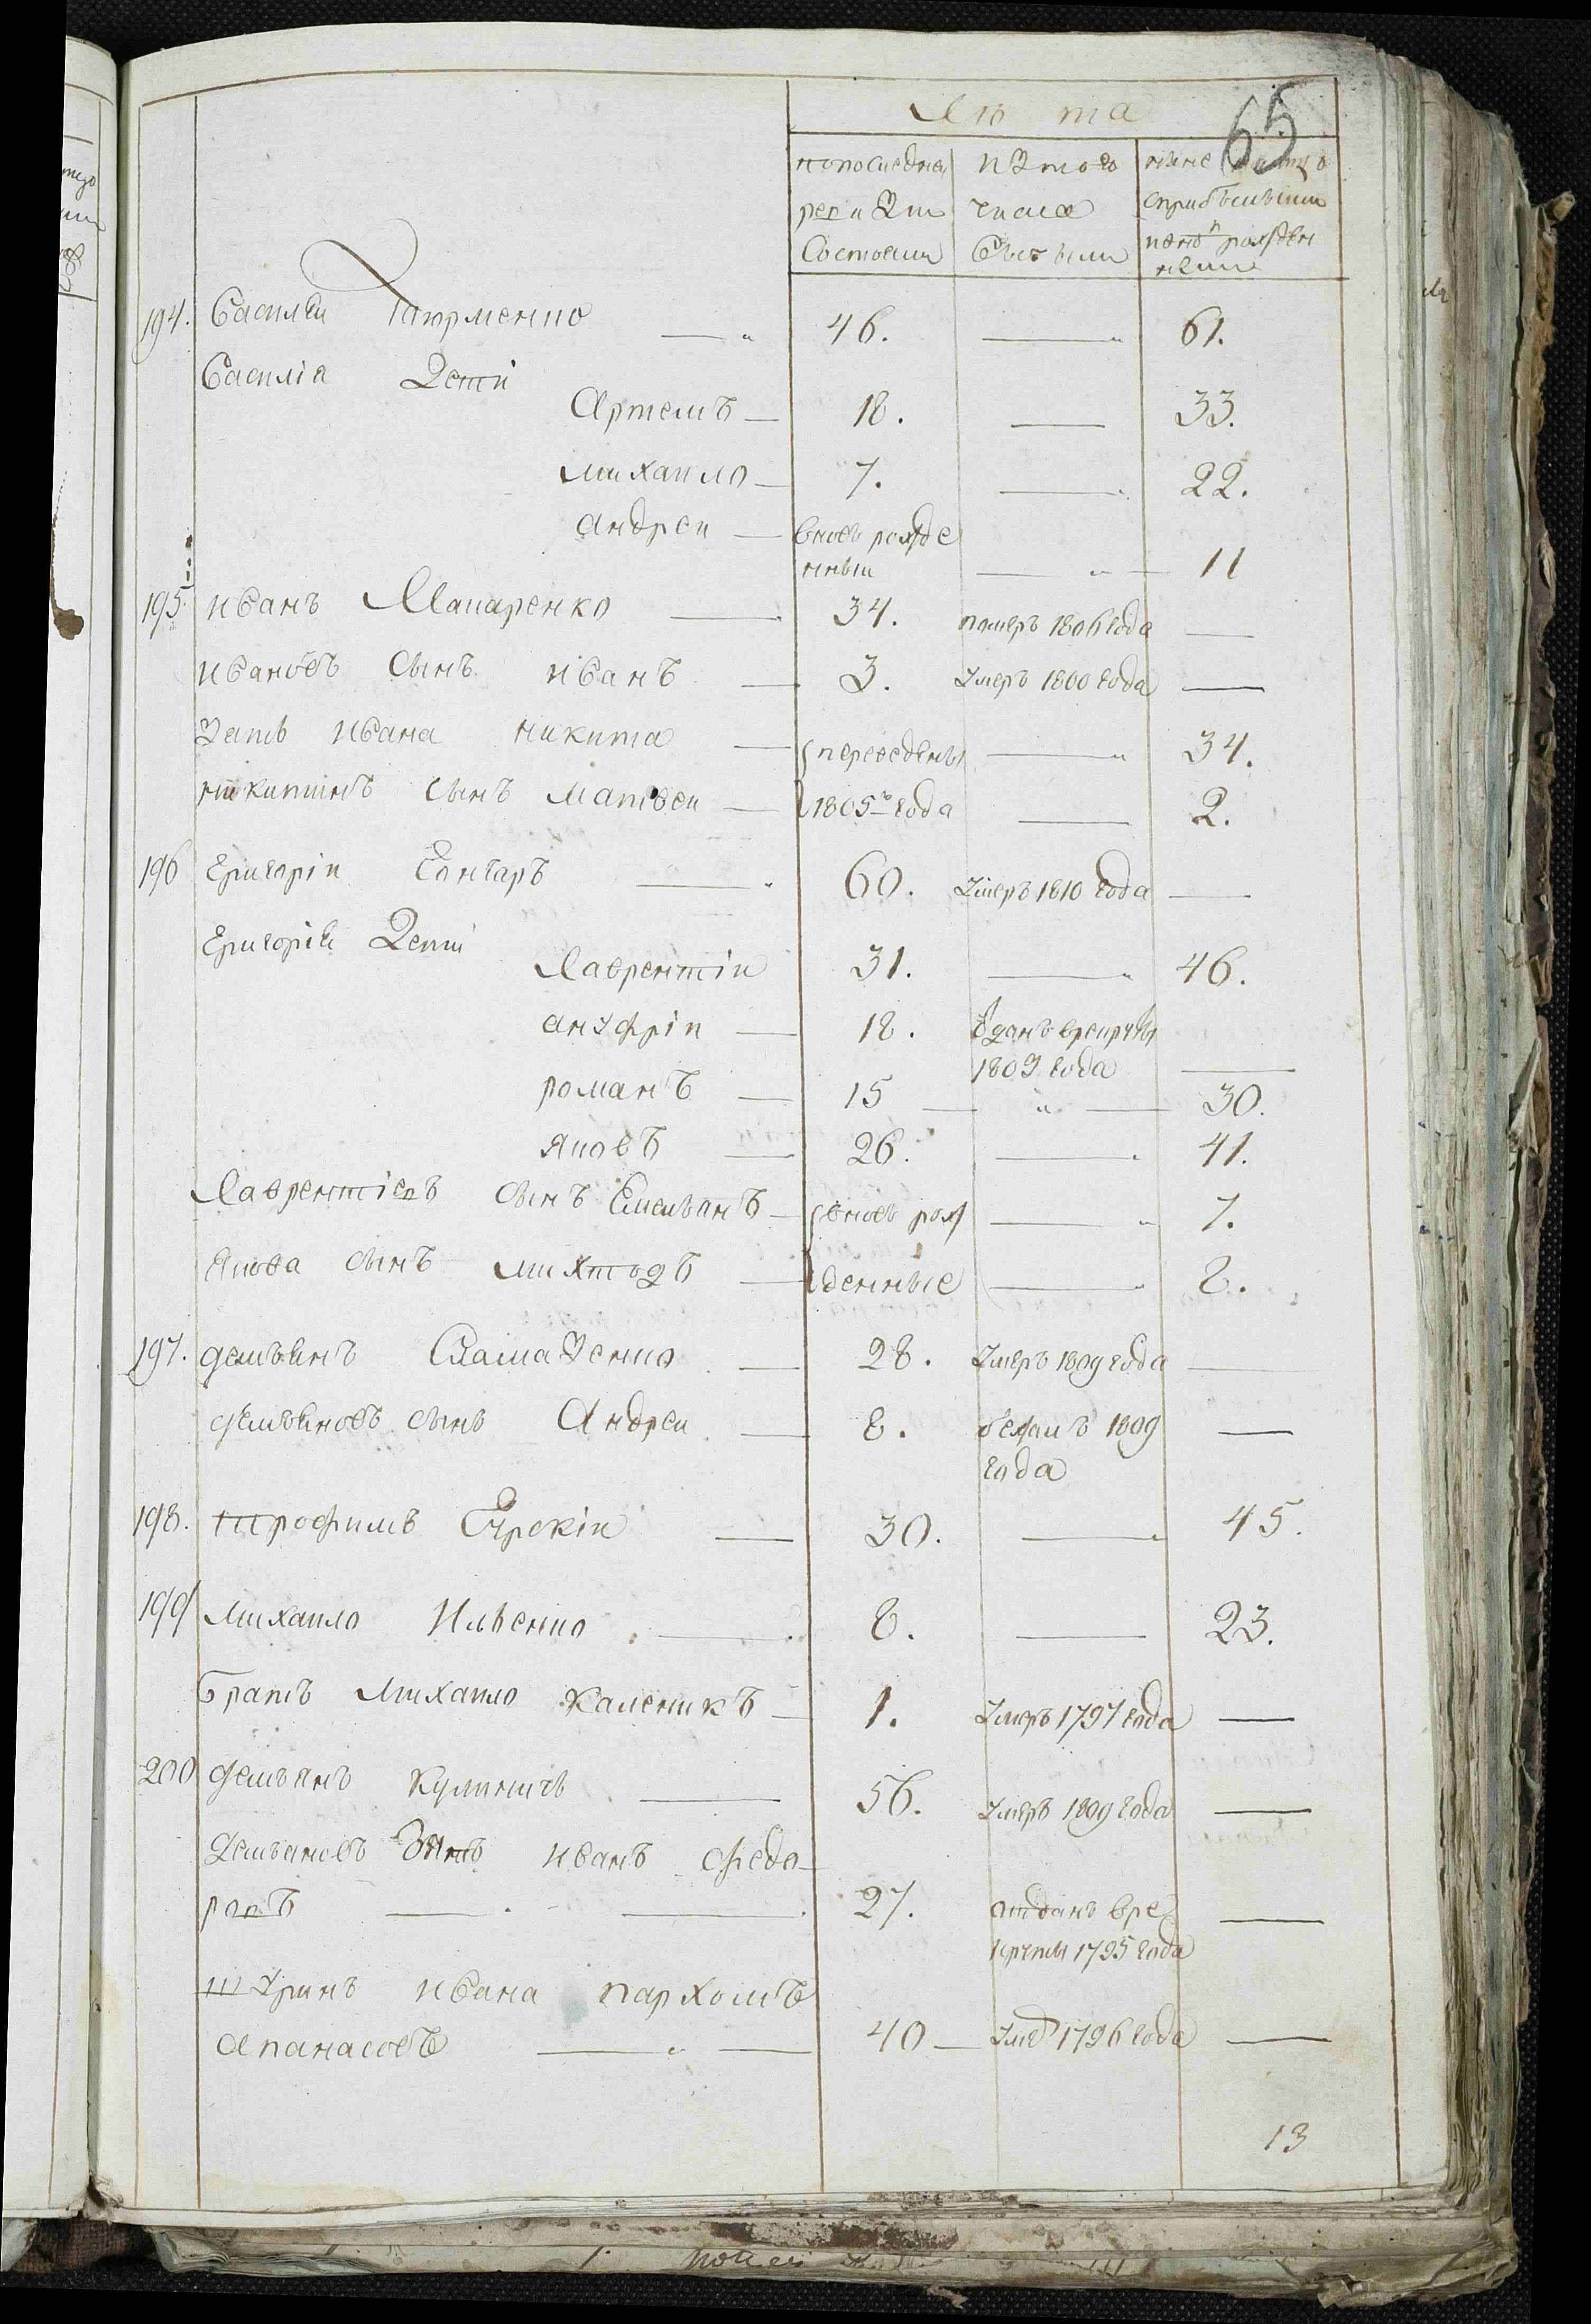 65
Лѣ та
попоследнеи изтого ныне налицо
ревизи числа сприбылыми
Состояли выбыли рожден
ными
194. Василеи 46. — 61.
Василія Дети
Артемъ — 18. — 33.
михаило — 7. — 22.
андреи — вновь рожде
нныи — 11
195. иванъ Макаренко — 34. померъ 1806 года —
ивановъ сынъ иванъ — 3. умеръ 1800 года —
Зять ивана никита — переведены — 34.
никитинъ сынъ матвеи — 1805 года — 2.
196 григоріи Гончаръ — 60. умеръ 1810 года —
григорія Дети
Лаврентіи 31. — 46.
ануфріи — 18. отданъ врекруты
1809 года —
романъ — 15 — 30.
яковъ — 26. — 41.
Лаврентіевъ сынъ Емельянъ — вновь рож — 7.
якова сынъ — денные — 8.
197. демьянъ — 28. умеръ 1809 года —
демьяновъ сынъ Андреи — 8. бежалъ 1809 —
года
198. трофимъ — 30. — 45.
199 михаило Ильенко — 8. — 23.
братъ михаило каленикъ — 1. умеръ 1797 года —
200 демьянъ кулиничь — 56. умеръ 1809 года —
Демьяновъ Зять иванъ федо-
ровъ — 27. отданъ вре —
круты 1795 года
шуринъ ивана пархомъ
апанасовъ — 40 — 1796 года —
13